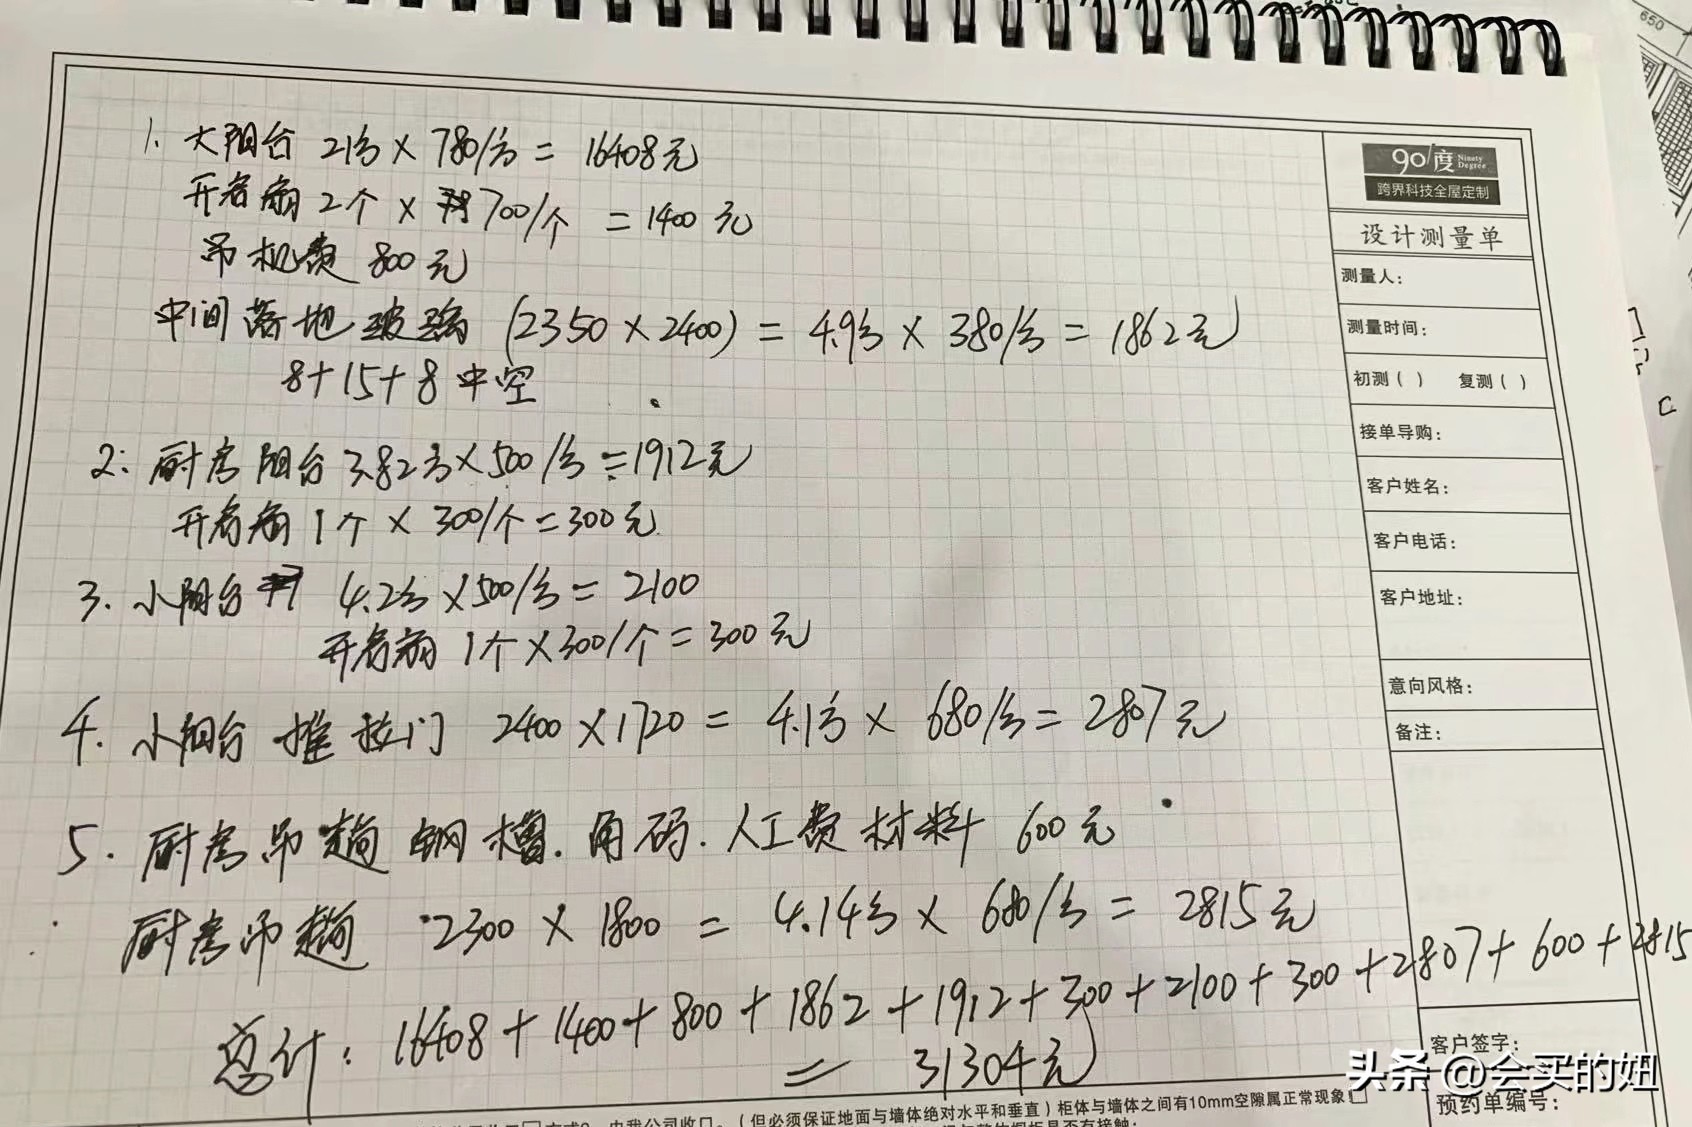 1. 大阳台 21方 × 780/方 = 16408元
开启扇 2个 × 700/个 = 1400元
吊机费 800元
中间落地玻璃 (2350 × 2400) = 4.9方 × 380/方 = 1862元
8+15+8中空
2: 厨房阳台 3.82方×500/方=1912元
开启扇 1个 × 300/个=300元
3. 小阳台 4.2方×500/方= 2100
开启扇 1个×300/个=300元
4. 小阳台 推拉门 2400×1720 = 4.1方× 680/方= 2807元
5. 厨房吊趟 钢槽.角码.人工费材料 600元
厨房吊趟 2300 × 1800 = 4.14方× 680/方= 2815元
总计: 16408+1400+800+1862+1912+300+2100+300+2807+600+2815
= 31304元
90度 Ninety Degree
跨界科技全屋定制
设计测量单
测量人:
测量时间:
初测( ) 复测( )
接单导购:
客户姓名:
客户电话:
客户地址:
意向风格:
备注:
客户签字:
预约单编号:
由我公司收口。(但必须保证地面与墙体绝对水平和垂直)柜体与墙体之间有10mm空隙属正常现象
头条 @会买的妞
650